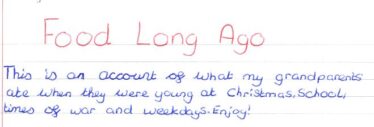 Food Long Ago
This is an account of what my grandparents
ate when they were young at Christmas, School,
times of war and weekdays. Enjoy!